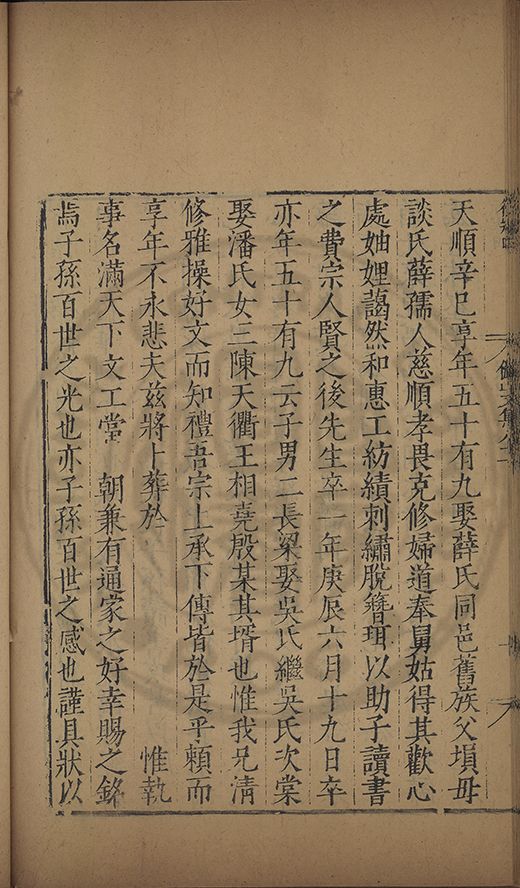 天順辛巳享年五十有九娶薛氏同邑舊族父塤毋
談氏薛孺人慈順孝畏克修婦道奉舅姑得其歡心
處妯娌藹然和惠工紡績刺繡脫簪珥以助子讀書
之費宗人賢之後先生卒一年庚辰六月十九日卒
亦年五十有九云子男二長梁娶吳氏繼吳氏次棠
娶潘氏女三陳天衢王相堯殷某其壻也惟我兄清
修雅操好文而知禮吾宗上承下傳皆於是乎頼而
享年不永悲夫兹將卜葬於 惟執
事名滿天下文工當 朝兼有通家之好幸賜之銘
焉子孫百世之光也亦子孫百世之感也謹具狀以